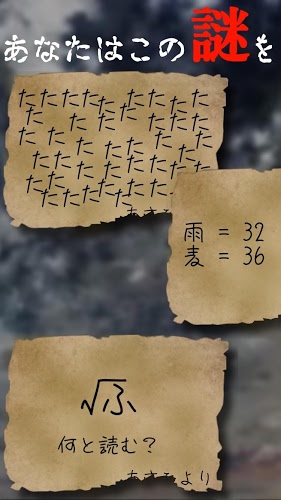 あなたはこの謎を
たたたたたたたたた
たたたたたた
たたたたたた
たたたたたたた
たたたたたたたた
たたたたたたたた
たたたたたたたた
雨 = 32
麦 = 36
√ふ
何と読む？
より